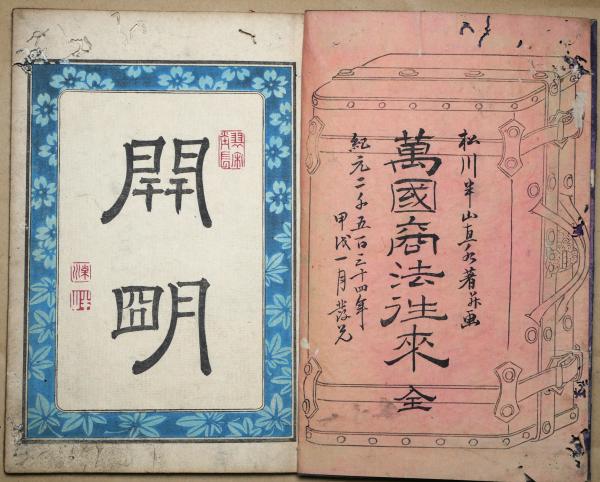 松川半山直水著并画
萬國商法徃來 全
紀元二千五百三十四年
甲戌一月發兌
開明